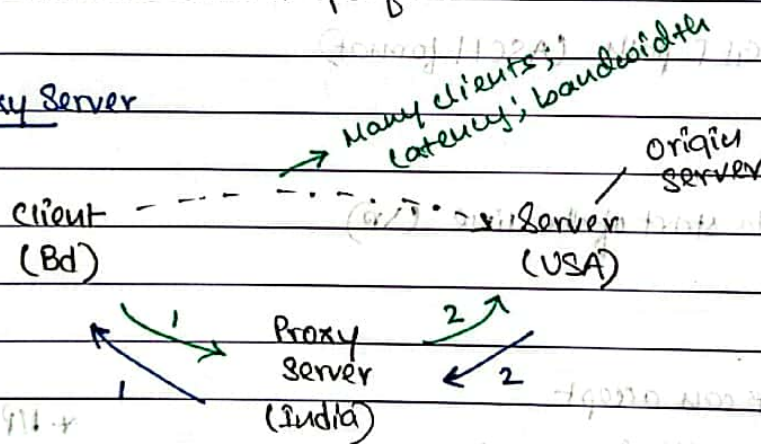 xy Server
Many clients;
Latency; bandwidth
Origin
server
Client
Server
(Bd)
(USA)
1
2
Proxy
Server
2
1
(India)